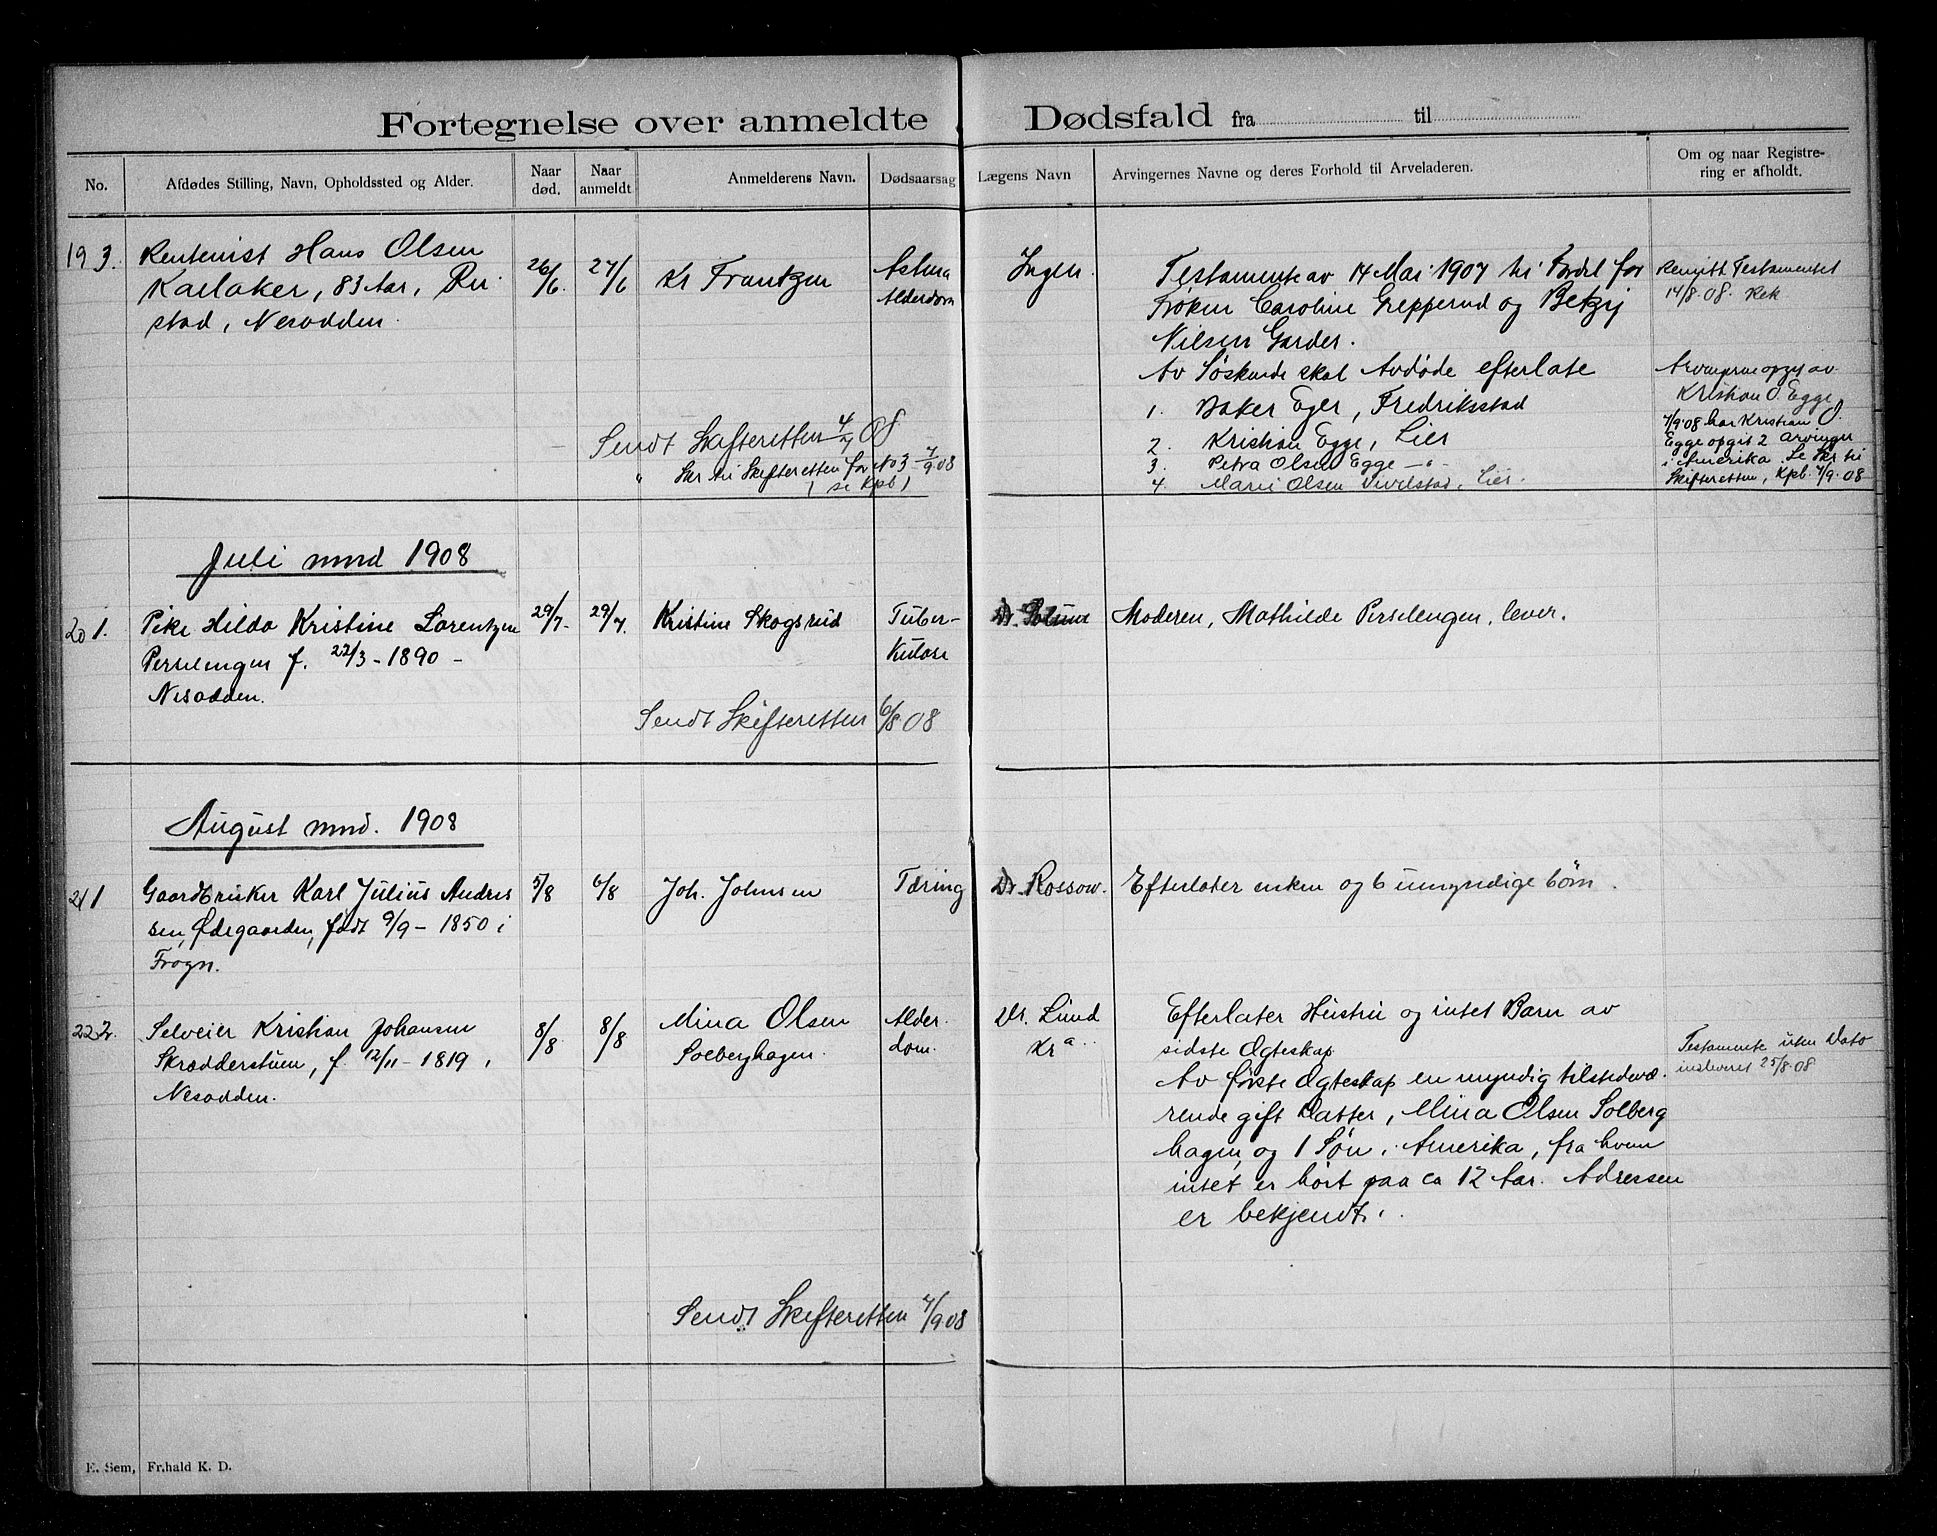 Fortegnelse over anmeldte Dødsfald fra til
No.
Afdødes Stilling, Navn, Opholdssted og Alder.
Naar død.
Naar anmeldt
Anmelderens Navn.
Dødsaarsag
Lægens Navn
Arvingernes Navne og deres Forhold til Arveladeren.
Om og naar Registre-
ring er afholdt.
19 3.
Rentenist Hans Olsen
Karlaker, 83 Aar, Ru
stad, Nesodden.
26/6.
27/6
Kr Frantzen
Astma
Alderdom
Ingen.
Testamente av 14 Mai 1907 til Fordel for
Frøken Caroline Grepperud og Betzy
Nilsen Garder.
Av Søskende skal Avdøde efterlate
1. Baker Eger, Fredriksstad
2. Kristian Egge, Lier
3. Petra Olsen Egge - " -
4. Marie Olsen , Lier.
Testamentet
14/8.08. Rek
Arvingerne opgij av
Kristian O. Egge
7/9.08 har Kristian O.
Egge opgit 2 arvinger
i Amerika. Se Skr til
Skifteretten, Kpb. 7/9.08
Sendt Skifteretten 4/7 08
" Skr til Skifteretten for No 3 7/9.08
( se Kpb )
Juli mnd 1908
20 1.
Pike Hilda Kristine Lorentzen
Perselengen f. 22/3 - 1890 -
Nesodden.
29/7.
29/7.
Kristine Skogsrud
Tuber-
kulose
Dr.
Moderen, Mathilde Perselengen, lever.
Sendt Skifteretten 6/8 08
August mnd. 1908
21 1
Gaardbruker Karl Julius Andres
sen, Ødegaarden, født 9/9 - 1850 i
Frogn.
5/8
6/8
Joh. Johnsen
Tæring
Dr. Rossow.
Efterlater enken og 6 umyndige børn.
22 2.
Selveier Kristian Johansen
Skrædderstuen, f. 12/11 - 1819,
Nesodden.
8/8
8/8
Mina Olsen
Solberghagen.
Alder-
dom.
Dr. Lund
Kra..
Efterlater Hustru og intet Barn av
sidste Ægteskap
Av første Ægteskap en myndig tilstedevæ-
rende gift Datter, Mina Olsen Solberg
hagen, og 1 Søn i Amerika, fra hvem
intet er hørt paa ca 12 Aar. Adressen
er bekjendt.
Testamente uten Dato
indleveret 25/8.08
Sendt Skifteretten 7/9 08
E. Sem, Fr.hald K. D.